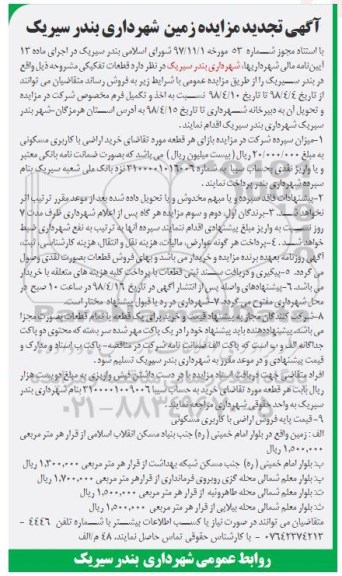 آگهی تجدید مزایده زمین شهرداری بندر سیریک
با استناد مجوز شماره ۵۳ مورخه ۹۷/۱۱/۱ شورای اسلامی بندر سیریک در اجرای ماده ۱۳
آیین‌نامه مالی شهرداریها، شهرداری بندر سیریک در نظر دارد قطعات تفکیکی مشروحه ذیل واقع
در بندر سیریک را از طریق مزایده عمومی با شرایط زیر به فروش رساند متقاضیان می توانند
از تاریخ ۹۸/۴/۴ تا تاریخ ۹۸/۴/۱۰ نسبت به اخذ و تکمیل فرم مخصوص شرکت در مزایده
و تحویل آن به دبیرخانه شهرداری تا تاریخ ۹۸/۴/۱۵ به آدرس استان هرمزگان-شهر بندر
سیریک شهرداری بندر سیریک اقدام نمایند.
۱-میزان سپرده شرکت در مزایده بازای هر قطعه مورد تقاضای خرید اراضی با کاربری مسکونی
به مبلغ ۲۰/۰۰۰/۰۰۰ ریال (بیست میلیون ریال) می باشد که به صورت ضمانت نامه بانکی معتبر
و یا واریز نقدی به حساب سیبا به شماره ۳۱۰۰۰۰۱۰۱۶۰۰۶ نزد بانک ملی شعبه سیریک بنام
سپرده شهرداری بندر پرداخت نمایند.
۲-پیشنهادات فاقد سپرده و یا مبهم مخدوش و یا تحویل داده شده بعد از موعد مقرر ترتیب اثر
نخواهد شد. ۳-برندگان اول دوم و سوم مزایده هر گاه پس از اعلام شهرداری ظرف مدت ۷
روز نسبت به واریز مبلغ پیشنهادی اقدام ننمایند سپرده آنها به ترتیب به نفع شهرداری ضبط
خواهد شد. ۴-پرداخت هر گونه عوارض، مالیات، هزینه نقل و انتقال، هزینه کارشناسی، ثبت،
آگهی روزنامه بعهده برنده مزایده و خریدار می باشد و بهای فروش قطعات بصورت نقدی وصول
می گردد. ۵-پیگیری و دریافت سند ثبتی قطعات با پرداخت کلیه هزینه های متعلقه با خریدار
می باشد. ۶-پیشنهادهای واصله پس از انتشار آگهی در تاریخ ۹۸/۴/۱۶ در ساعت ۱۰ صبح در
محل شهرداری مفتوح می گردد. ۷-شهرداری در رد یا قبول پیشنهاد مختار است.
۸-شرکت کنندگان مجاز به پیشنهاد قیمت و خرید برای یک قطعه یا تمام قطعات بصورت مجزا
می باشند. پیشنهاددهنده باید پیشنهاد خود را در یک پاکت مهر شده سر بسته که محتوی دو پاکت
جداگانه الف و ب است که پاکت الف ضمانت نامه شرکت در مناقصه- پاکت ب اسناد و مدارک و
قیمت پیشنهادی و در موعد مقرر به شهرداری بندر سیریک تسلیم شود.
افراد متقاضی جهت دریافت اسناد مزایده با در دست داشتن فیش واریزی به مبلغ دویست هزار
ریال بابت هر قطعه مورد تقاضای خرید به حساب سیبا ۳۱۰۰۰۰۱۰۰۹۰۰۶ بنام شهرداری بندر
سیریک به واحد حقوقی شهرداری مراجعه نمایند.
۹-قیمت پایه فروش اراضی با کاربری مسکونی
الف: زمین واقع در بلوار امام خمینی (ره) جنب بنیاد مسکن انقلاب اسلامی از قرار هر متر مربعی
۱,۵۰۰,۰۰۰ ریال
ب: بلوار امام خمینی (ره) جنب مسکن شبکه بهداشت از قرار هر متر مربعی ۱,۳۰۰,۰۰۰ ریال
پ: بلوار معلم شمالی محله گزی روبروی فرمانداری از قرار هر متر مربعی ۱,۷۰۰,۰۰۰ ریال
ت: بلوار معلم شمالی محله طاهرونیه از قرار هر متر مربعی ۱,۵۰۰,۰۰۰ ریال
ث: بلوار معلم شمالی محله بیلایی از قرار هر متر مربعی ۱,۵۰۰,۰۰۰ ریال
متقاضیان می توانند در صورت نیاز یا کسب اطلاعات بیشتر با شماره تلفن ۴۴۴۶ -
۰۷۶۴۲۳۷۴۲۱۳ - با کارشناس حقوقی تماس حاصل نمایند. ۴۸ م/الف
روابط عمومی شهرداری بندر سیریک
۰۲۱-۸۸۳۴۹۶۷۰